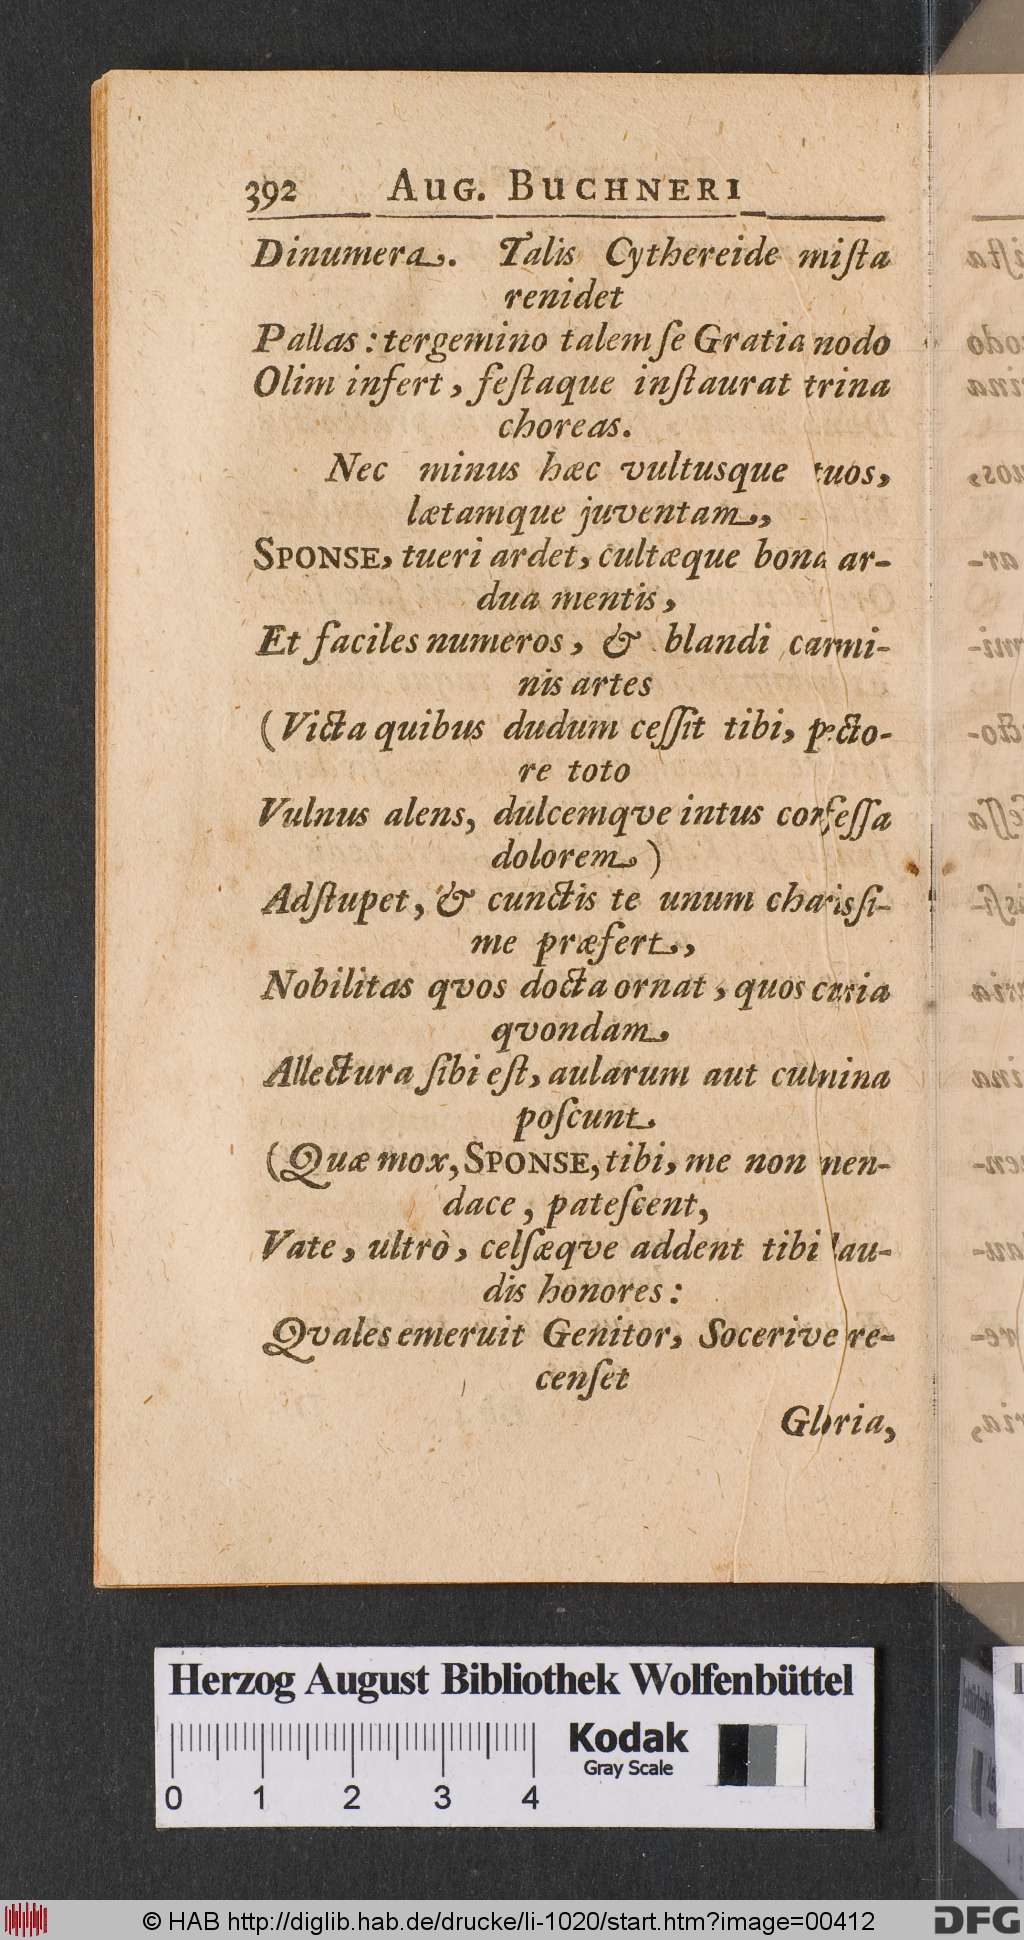 392 AUG. BUCHNERI
Dinumera. Talis Cythereide miſta
renidet
Pallas: tergemino talem ſe Gratia nodo
Olim infert, feſtaque inſtaurat trina
choreas.
Nec minus hæc vultusque tuos,
lætamque juventam,
SPONSE, tueri ardet, cultæque bona ar-
dua mentis,
Et faciles numeros, & blandi carmi-
nis artes
(Victa quibus dudum ceſſit tibi, pecto-
re toto
Vulnus alens, dulcemqve intus confeſſa
dolorem)
Adſtupet, & cunctis te unum charisſi-
me præfert,
Nobilitas qvos docta ornat, quos curia
qvondam
Allectura ſibi eſt, aularum aut culmina
poſcunt.
(Quæ mox, SPONSE, tibi, me non men-
dace, pateſcent,
Vate, ultrò, celſæqve addent tibi lau-
dis honores:
Qvales emeruit Genitor, Socerive re-
cenſet
Gloria,
Herzog August Bibliothek Wolfenbüttel
Kodak
Gray Scale
0 1 2 3 4
© HAB http://diglib.hab.de/drucke/li-1020/start.htm?image=00412
DFG